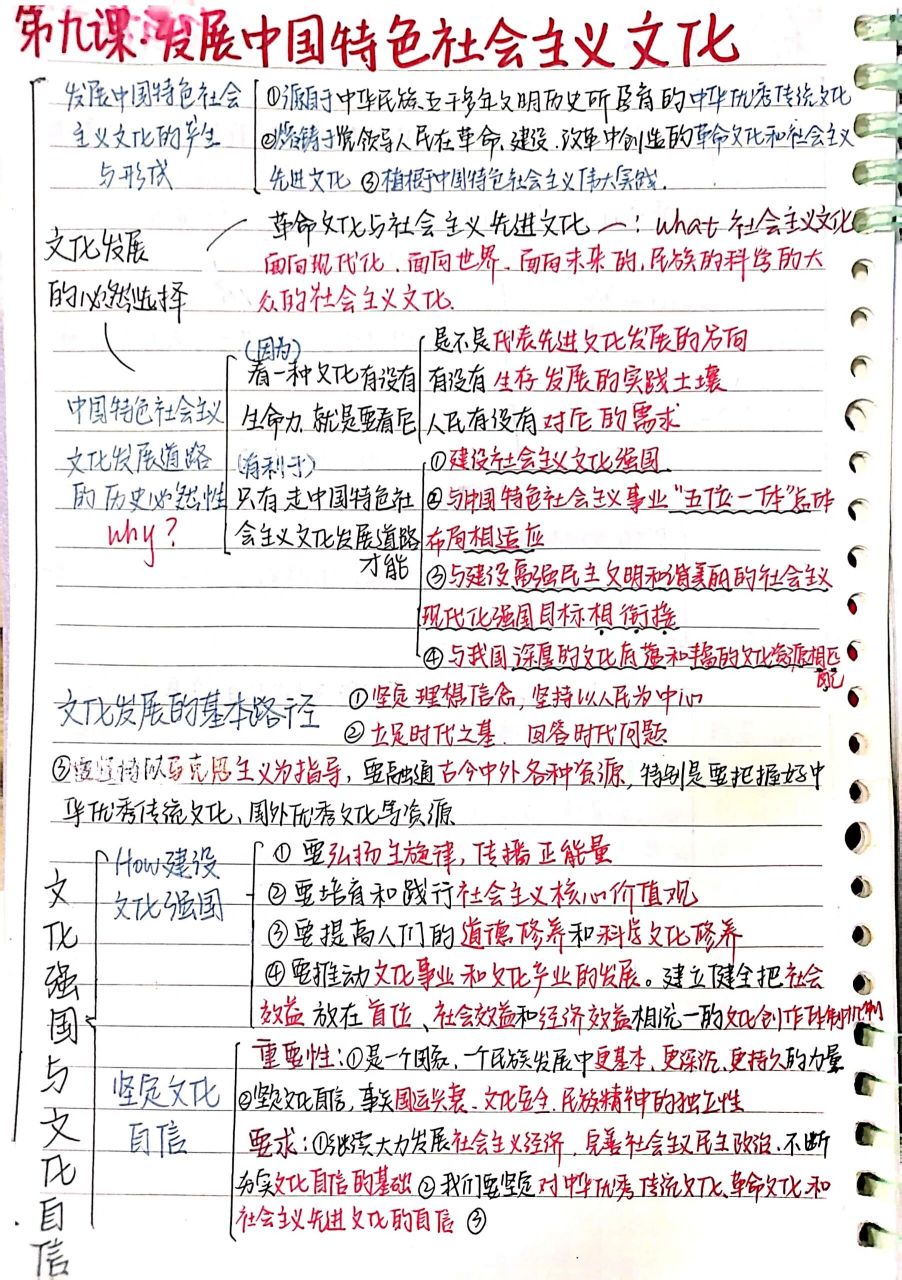 第九课：发展中国特色社会主义文化
发展中国特色社会
主义文化的产生
与形成
①源自于中华民族五千多年文明历史所孕育的中华优秀传统文化
②熔铸于党领导人民在革命、建设、改革中创造的革命文化和社会主义
先进文化 ③植根于中国特色社会主义伟大实践.
文化发展
的必然选择
革命文化与社会主义先进文化 一：what 社会主义文化
面向现代化、面向世界、面向未来的,民族的科学的大
众的社会主义文化.
中国特色社会主义
文化发展道路
的历史必然性
why?
(因为)
看一种文化有没有
生命力,就是要看它
是不是代表先进文化发展的方向
有没有生存发展的实践土壤
人民有没有对它的需求
(有利于)
只有走中国特色社
会主义文化发展道路
才能
①建设社会主义文化强国
②与中国特色社会主义事业“五位一体”总体
布局相适应
③与建设富强民主文明和谐美丽的社会主义
现代化强国目标相衔接
④与我国深厚的文化底蕴和丰富的文化资源相匹
配
文化发展的基本路径
①坚定理想信念,坚持以人民为中心
②立足时代之基、回答时代问题
③要坚持以马克思主义为指导,要融通古今中外各种资源,特别是要把握好中
华优秀传统文化、国外优秀文化等资源
文化强国与文化自信
How建设
文化强国
①要弘扬主旋律,传播正能量
②要培育和践行社会主义核心价值观
③要提高人们的道德修养和科学文化修养
④要推动文化事业和文化产业的发展。建立健全把社会
效益放在首位、社会效益和经济效益相统一的文化创作体制机制
坚定文化
自信
重要性：①是一个国家、一个民族发展中更基本、更深沉、更持久的力量
②坚定文化自信,事关国运兴衰、文化安全、民族精神的独立性
要求：①继续大力发展社会主义经济、完善社会主义民主政治、不断
夯实文化自信的基础 ②我们要坚定对中华优秀传统文化、革命文化和
社会主义先进文化的自信 ③